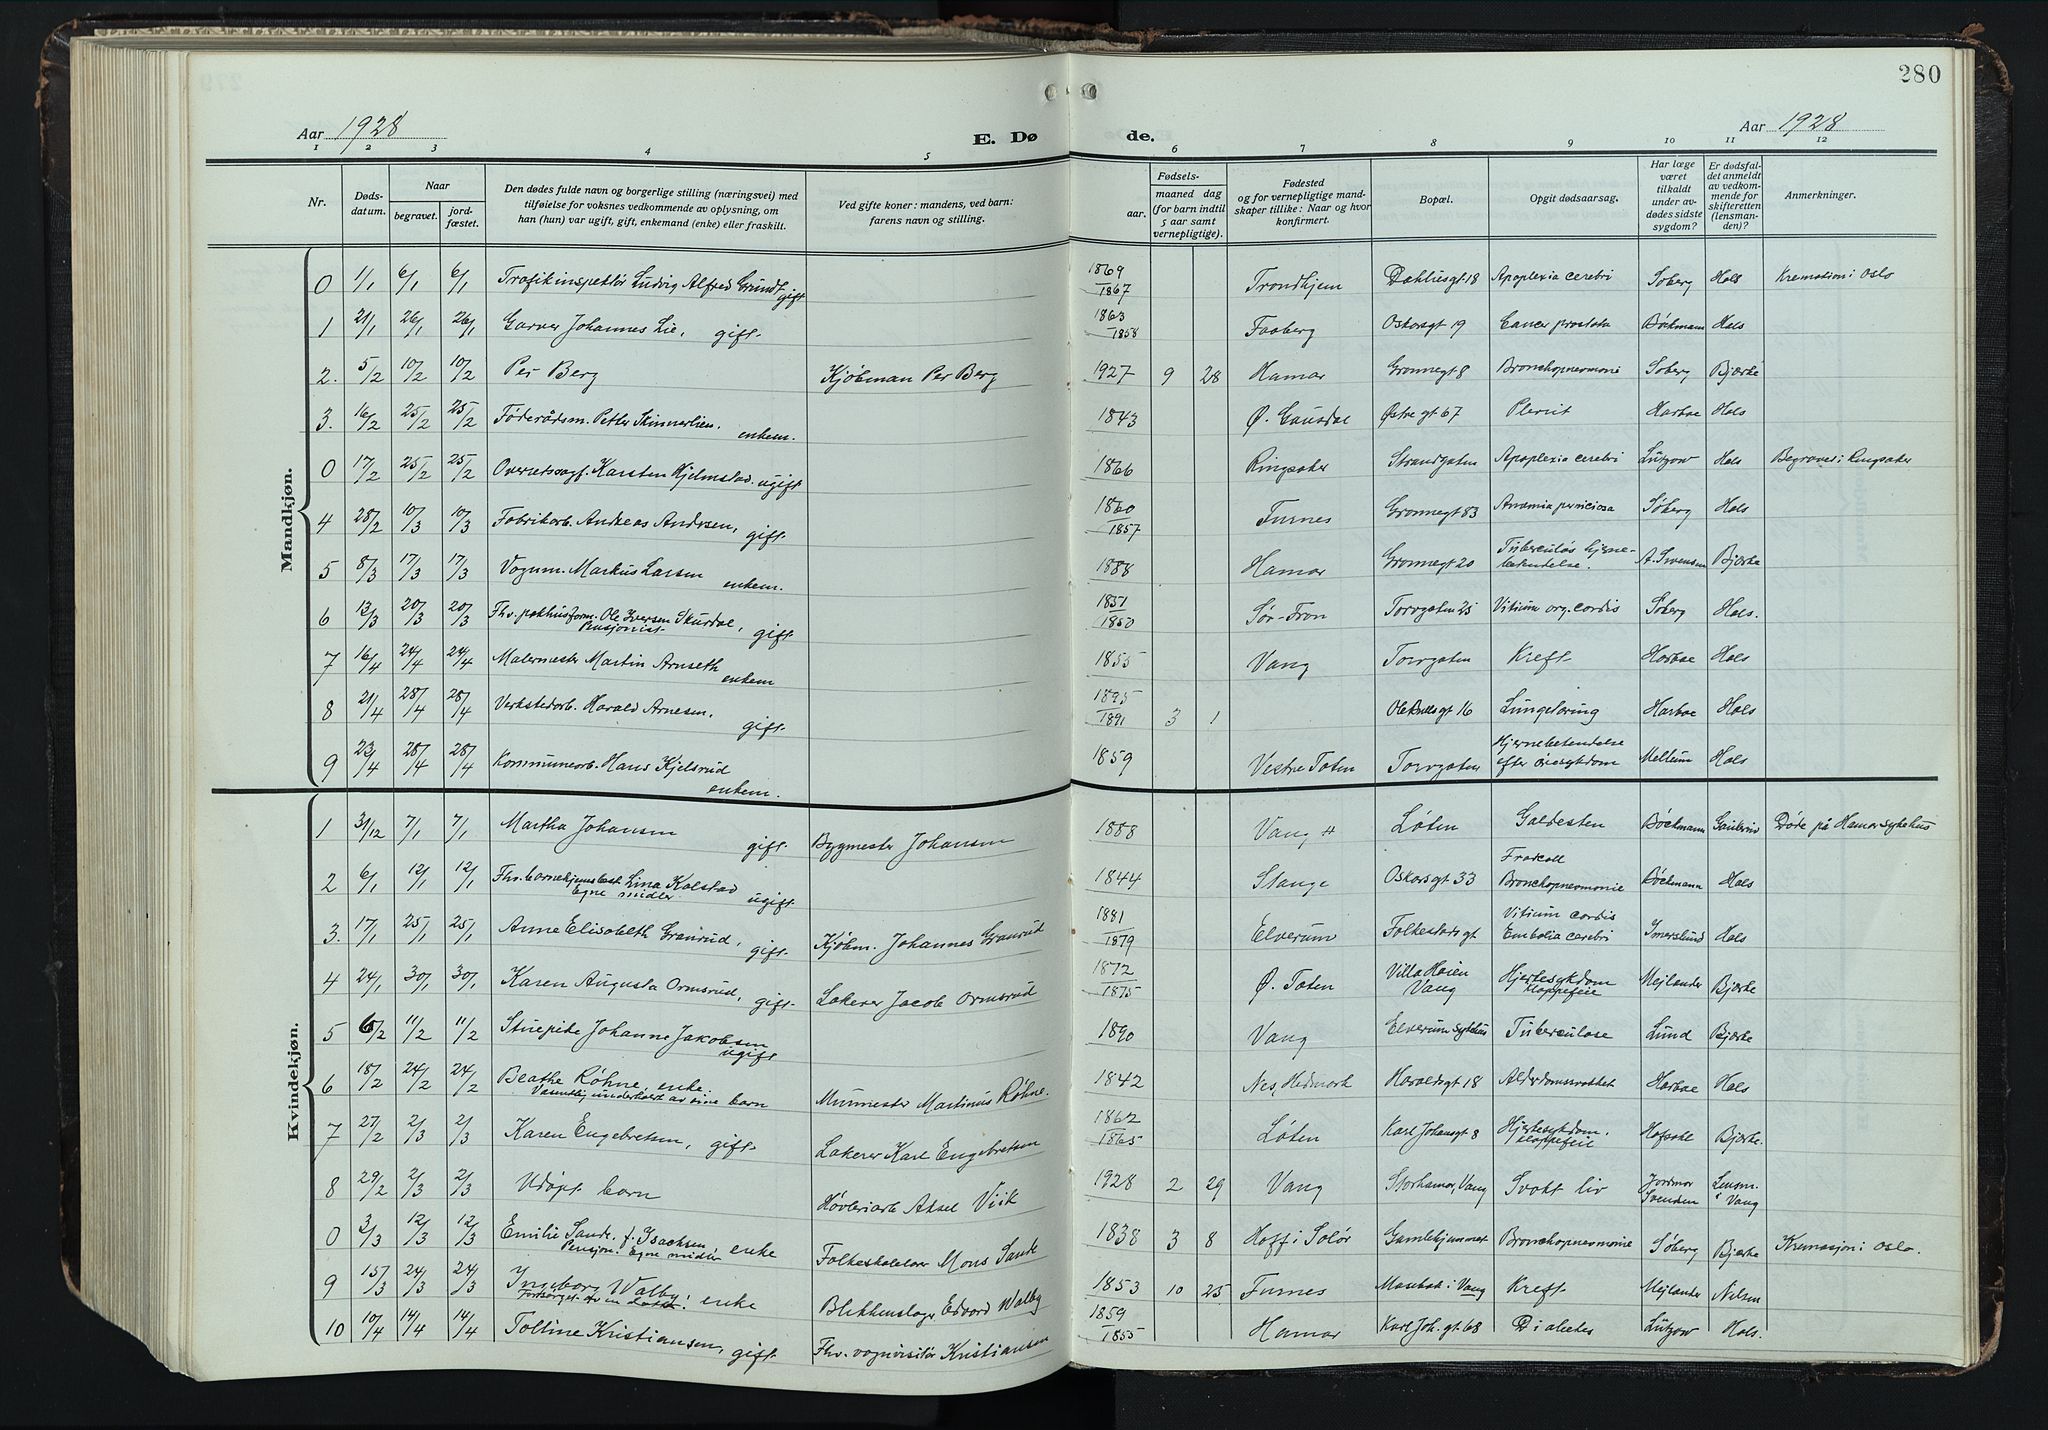 280
Aar 1928 E. Dø de. Aar 1928
1 2 3 4 5 6 7 8 9 10 11 12
Nr. Dødsdatum. Naar begravet. jordfæstet. Den dødes fulde navn og borgerlige stilling (næringsvei) med tilføielse for voksnes vedkommende av oplysning, om han (hun) var ugift, gift, enkemand (enke) eller fraskilt. Ved gifte koner: mandens, ved barn: farens navn og stilling. Fødsels- aar. maaned dag (for barn indtil 5 aar samt vernepligtige). Fødested og for vernepligtige mandskaper tillike: Naar og hvor konfirmert. Bopæl. Opgit dødsaarsag. Har læge været tilkaldt under avdødes sidste sygdom? Er dødsfaldet anmeldt av vedkommende for skifteretten (lensmanden)? Anmerkninger.
Mandkjøn.
0 1/1 6/1 6/1 Trafikinspektør Ludvig Alfred Grundt, gift 1869 1867 Trondhjem Dæhliesgt 18 Apoplexia cerebri Søberg Hals Kremation i Oslo
1 21/1 26/1 26/1 Garver Johannes Lie, gift. 1863 1858 Faaberg Oskarsgt 19 Cancer prostata Bøckmann Hals
2. 5/2 10/2 10/2 Per Berg Kjøbman Per Berg 1927 9 28 Hamar Grønnegt 8 Bronchopneomonie Søberg Bjerke
3. 16/2 25/2 25/2 Føderådsm. Petter Skinnerlien, enkem. 1843 Ø. Gausdal Østre gt 67 Plevrit Harboe Hals
0 17/2 25/2 25/2 Overretssagf. Karsten Hjelmstad, ugift 1866 Ringsaker Strandgaten Apoplexia cerebri Lützow Hals Begravet i Ringsaker
4 28/2 10/3 10/3 Fabrikarb. Andreas Andersen, gift. 1860 1857 Furnes Grønnegt 83 Anæmia perniciosa Søberg Hals
5 8/3 17/3 17/3 Vognm. Markus Larsen enkem. 1888 Hamar Grønnegt 20 Tuberculøs hjernebetændelse. A. Svensen Bjerke
6 13/3 20/3 20/3 Fhv. pakhusform. Ole Iversen Skurdal, Pensjonist gift 1851 1850 Sør-Fron Torvgaten 25 Vitium org. cordis Søberg Hals.
7 16/4 24/4 24/4 Malermester Martin Arneseth enkem 1855 Vang Torvgaten Kreft Harboe Hals
8 21/4 28/4 28/4 Verkstedarb. Harald Arnesen, gift. 1895 1891 3 1 Ole Bullsgt 16 Lungetæring Harboe Hals
9 23/4 28/4 28/4 Kommunearb. Hans Kjelsrud enkem. 1859 Vestre Toten Torvgaten Hjernebetendelse efter øresykdom Mellum Hals
Kvindekjøn.
1 31/12 7/1 7/1 Martha Johansen gift. Byggmester Johansen 1888 Vang H Løten Galdesten Bøckmann Døde på Hamar sykehus
2 6/1 12/1 12/1 Fhv. barnehjemsbest. Lina Kolstad Egne midler ugift 1844 Stange Oskarsgt 33 Bronchopneomonie Bøckmann Hals
3. 17/1 25/1 25/1 Anne Elisabeth Granrud, gift. Kjøbm. Johannes Granrud 1881 1879 Elverum Folkestadsgt Vitium cordis Embolia cerebri Imerslund Hals
4 24/1 30/1 30/1 Karen Augusta Ormsrud, gift. Lakerer Jacob Ormsrud 1872 1875 Ø. Toten Villa Heien Vang Hjertesykdom klappefeil Mejlander Bjerke
5 6/2 11/2 11/2 Stuepike Johanne Jakobsen ugift 1890 Vang Elverum sykehus Tuberculose Lund Bjerke
6 18/2 24/2 24/2 Beathe Røhne, enke. Væsentlig underholdt av sine barn Murmester Martinus Røhne. 1842 Nes, Hedmark Haraldsgt 18 Alderdomssvakhet Harboe Hals
7 27/2 2/3 2/3 Karen Engebretsen, gift. Lakerer Karl Engebretsen 1862 1865 Løten Karl Johansgt 8 Hjertesykdom. klappefeil Hofdahl Bjerke.
8 29/2 2/3 2/3 Udøpt barn Høvleriarb Aksel Viik 1928 2 29 Vang Storhamar, Vang Svakt liv Jordmor Svenden Lensm. i Vang
0 3/3 12/3 12/3 Emilie Sande f. Isachsen Pensjon. Egne midler enke Folkeskolelærer Mons Sande 1838 3 8 Hoff i Solør Gamlehjemmet Bronchopneomonie Søberg Bjerke Kremasjon i Oslo.
9 15/3 24/3 24/3 Ingeborg Walby, enke Blikkenslager Edvard Walby 1853 10 25 Furnes Maubak i Vang Kreft Mejlander Nilsen
10 10/4 14/4 14/4 Tolline Kristiansen, gift. Fhv. vognvisitør Kristiansen 1859 1855 Hamar Karl Joh. gt 68 Diabetes Lützow Hals.